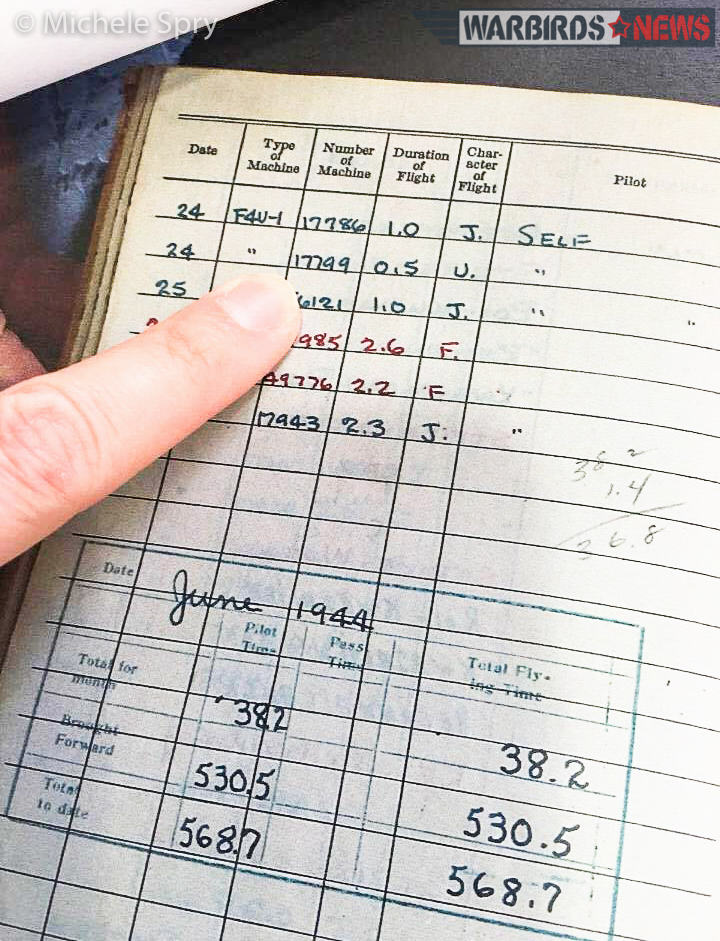 © Michele Spry
WARBIRDS NEWS
Date Type of Machine Number of Machine Duration of Flight Char-acter of Flight Pilot
24 F4U-1 17786 1.0 J. SELF
24 " 17799 0.5 U. "
25 6121 1.0 J. " "
985 2.6 F.
49776 2.2 F
17943 2.3 J. "
38 2
1.4
36.8
Date June 1944
Pilot Time Pass Time Total Fly-ing Time
Total for month 38.2 38.2
Brought Forward 530.5 530.5
Total to date 568.7 568.7